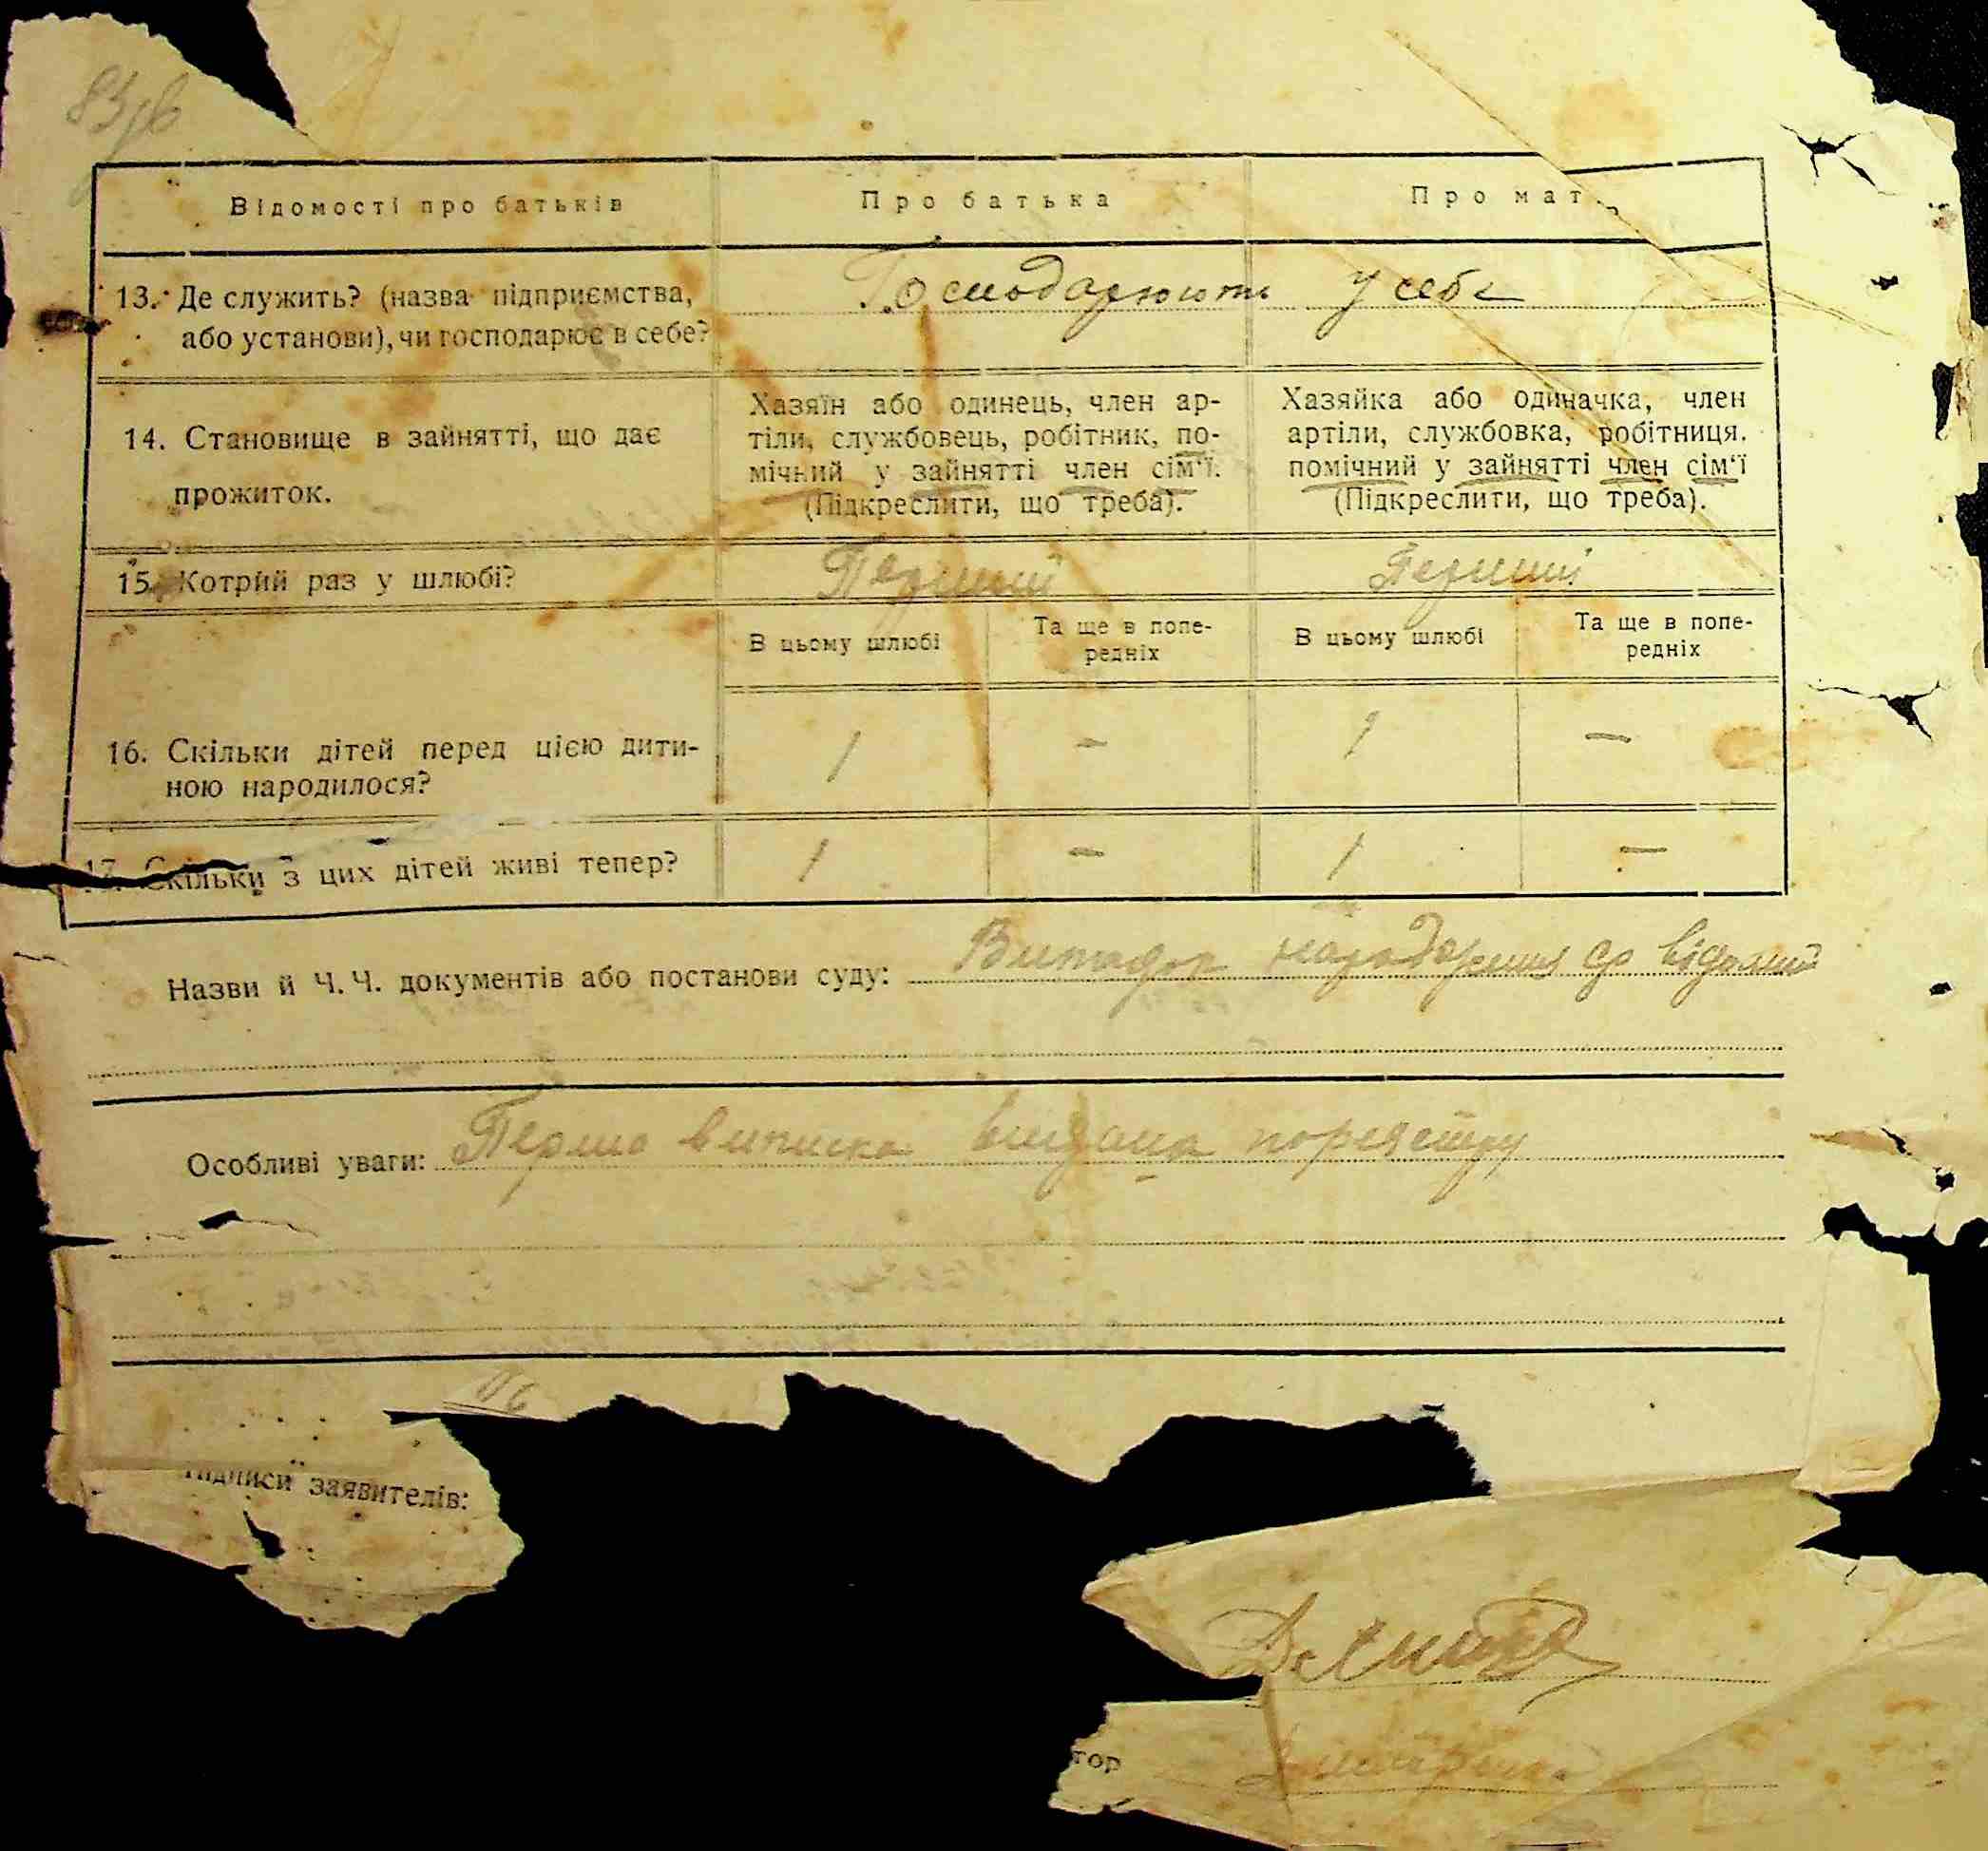 Відомості про батьків
Про батька
Про мат
13. Де служить? (назва підприємства,
або установи), чи господарює в себе?
Господарюють у себе
14. Становище в зайнятті, що дає
прожиток.
Хазяїн або одинець, член ар-
тіли, службовець, робітник, по-
мічний у зайнятті член сім'ї.
(Підкреслити, що треба).
Хазяйка або одиначка, член
артіли, службовка, робітниця.
помічний у зайнятті член сім'ї
(Підкреслити, що треба).
15. Котрий раз у шлюбі?
Перший
Перший
В цьому шлюбі
Та ще в попе-
редніх
В цьому шлюбі
Та ще в попе-
редніх
16. Скільки дітей перед цією дити-
ною народилося?
1
–
1
–
17. Скільки з цих дітей живі тепер?
1
–
1
–
Назви й Ч. Ч. документів або постанови суду:
Особливі уваги: Перша виписка видана
підписи заявителів:
тор